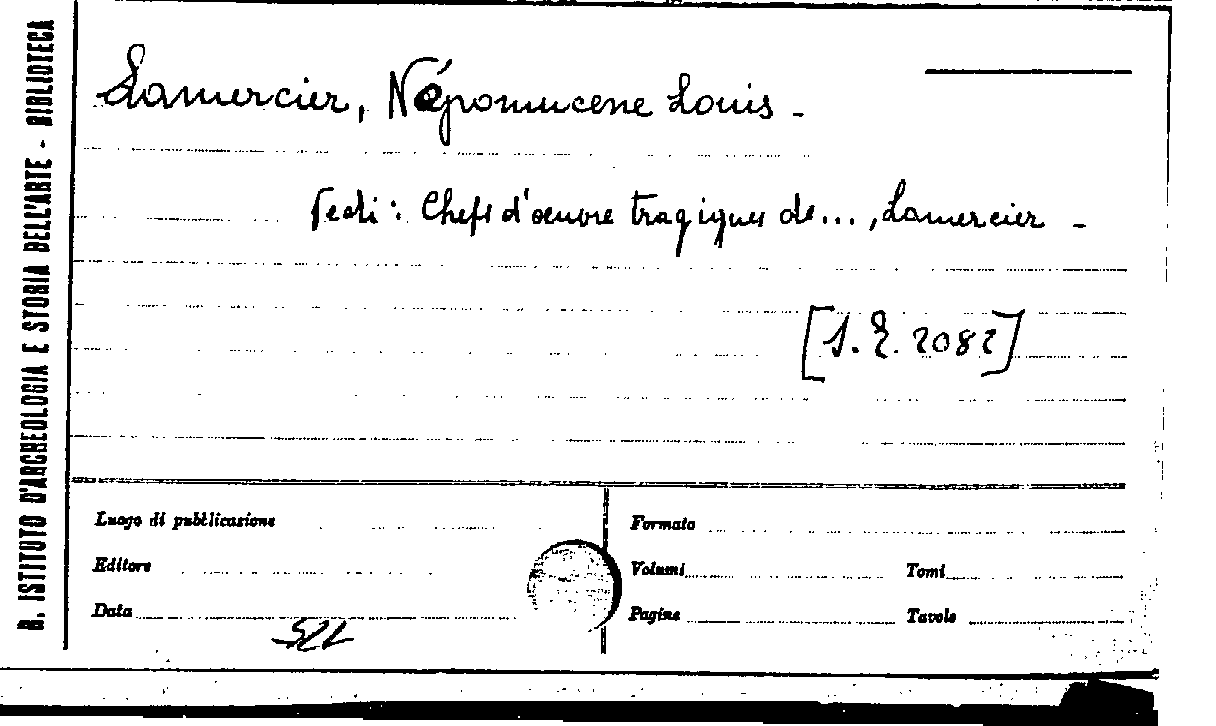 R. ISTITUTO D'ARCHEOLOGIA E STORIA DELL'ARTE - BIBLIOTECA
Lamercier, Népomucene Louis -
Vedi: Chefs d'oeuvre tragiques de..., Lamercier -
[S. E. 2082]
Luogo di pubblicazione
Formato
Editore
Volumi
Tomi
Data
Pagine
Tavole